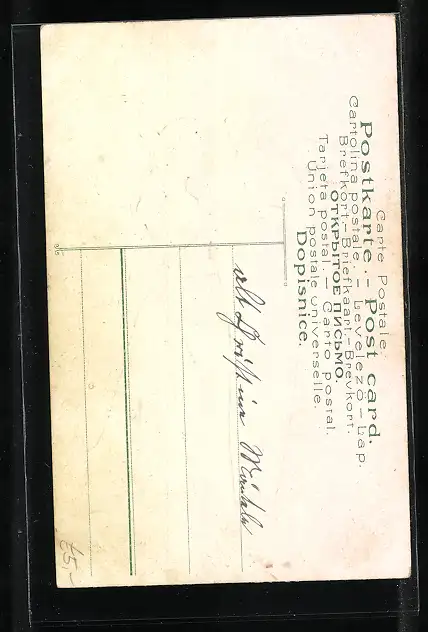 Carte Postale.
Postkarte. - Post card.
Cartolina postale. - Levelező-Lap.
Brefkort.-Briefkaart.-Brevkort.
ОТКРЫТОЕ ПИСЬМО.
Tarjeta postal. - Carto postal.
Union postale universelle.
Dopisnice.